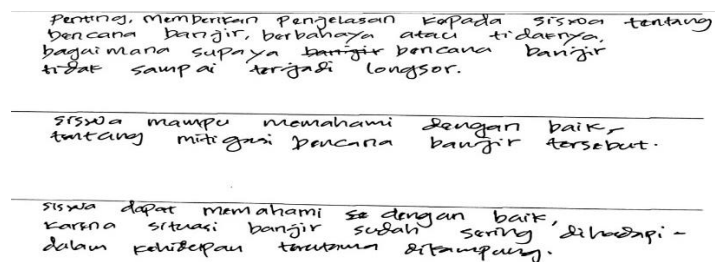 Penting, memberikan Penjelasan kepada siswa tentang
bencana banjir, berbahaya atau tidaknya,
bagaimana supaya banjir bencana banjir
tidak sampai terjadi longsor.
siswa mampu memahami dengan baik,
tentang mitigasi bencana banjir tersebut.
siswa dapat memahami se dengan baik,
karena situasi banjir sudah sering dihadapi -
dalam kehidupan terutama dikampung.